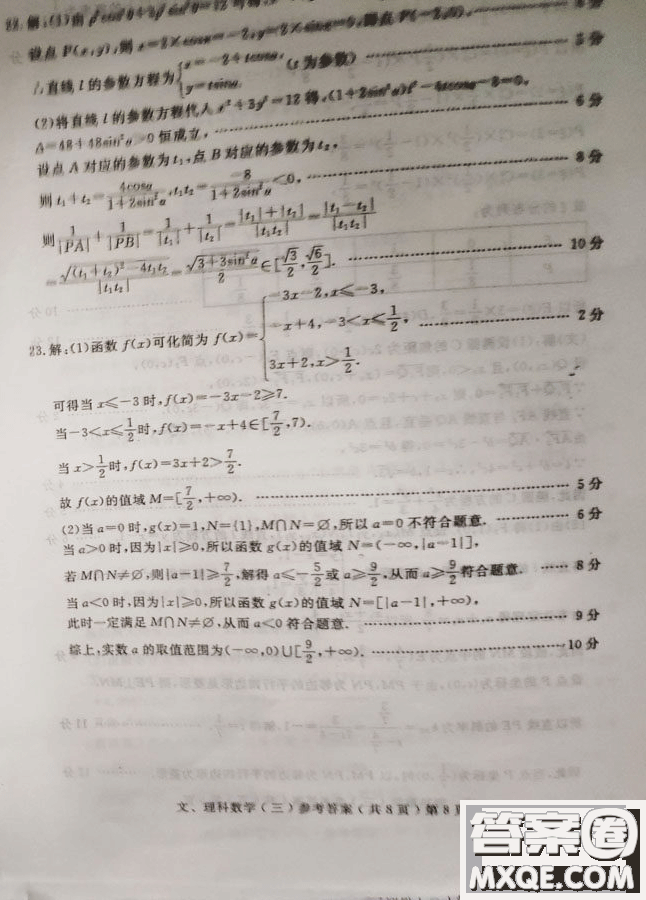 22.解:(1)由
设点 P(x,y),则
∴直线 l 的参数方程为{x=-2+tcosα, y=tsinα. (t 为参数) …… 5 分
(2)将直线 l 的参数方程代入 x²+3y²=12 得,(1+2sin²α)t²-4tcosα-8=0,
Δ=48+48sin²α>0 恒成立, …… 6 分
设点 A 对应的参数为 t₁,点 B 对应的参数为 t₂,
则 t₁+t₂=4cosα/(1+2sin²α),t₁t₂=-8/(1+2sin²α)<0, …… 8 分
则 1/|PA|+1/|PB|=1/|t₁|+1/|t₂|=(|t₁|+|t₂|)/|t₁t₂|=|t₁-t₂|/|t₁t₂|
=√((t₁+t₂)²-4t₁t₂)/|t₁t₂|=√(3+3sin²α)/2∈[√3/2,√6/2]. …… 10 分
23.解:(1)函数 f(x)可化简为 f(x)={-3x-2,x≤-3, -x+4,-3<x≤1/2, 3x+2,x>1/2. …… 2 分
可得当 x≤-3 时,f(x)=-3x-2≥7.
当-3<x≤1/2时,f(x)=-x+4∈[7/2,7).
当 x>1/2时,f(x)=3x+2>7/2.
故 f(x)的值域 M=[7/2,+∞). …… 5 分
(2)当 a=0 时,g(x)=1,N={1},M∩N=∅,所以 a=0 不符合题意. …… 6 分
当 a>0 时,因为|x|≥0,所以函数 g(x)的值域 N=(-∞,|a-1|],
若 M∩N≠∅,则|a-1|≥7/2,解得 a≤-5/2或 a≥9/2,从而 a≥9/2符合题意. …… 8 分
当 a<0 时,因为|x|≥0,所以函数 g(x)的值域 N=[|a-1|,+∞),
此时一定满足 M∩N≠∅,从而 a<0 符合题意. …… 9 分
综上,实数 a 的取值范围为(-∞,0)∪[9/2,+∞). …… 10 分
文、理科数学(三)参考答案(共 8 页) 第 8
答案圈
MXQE.COM